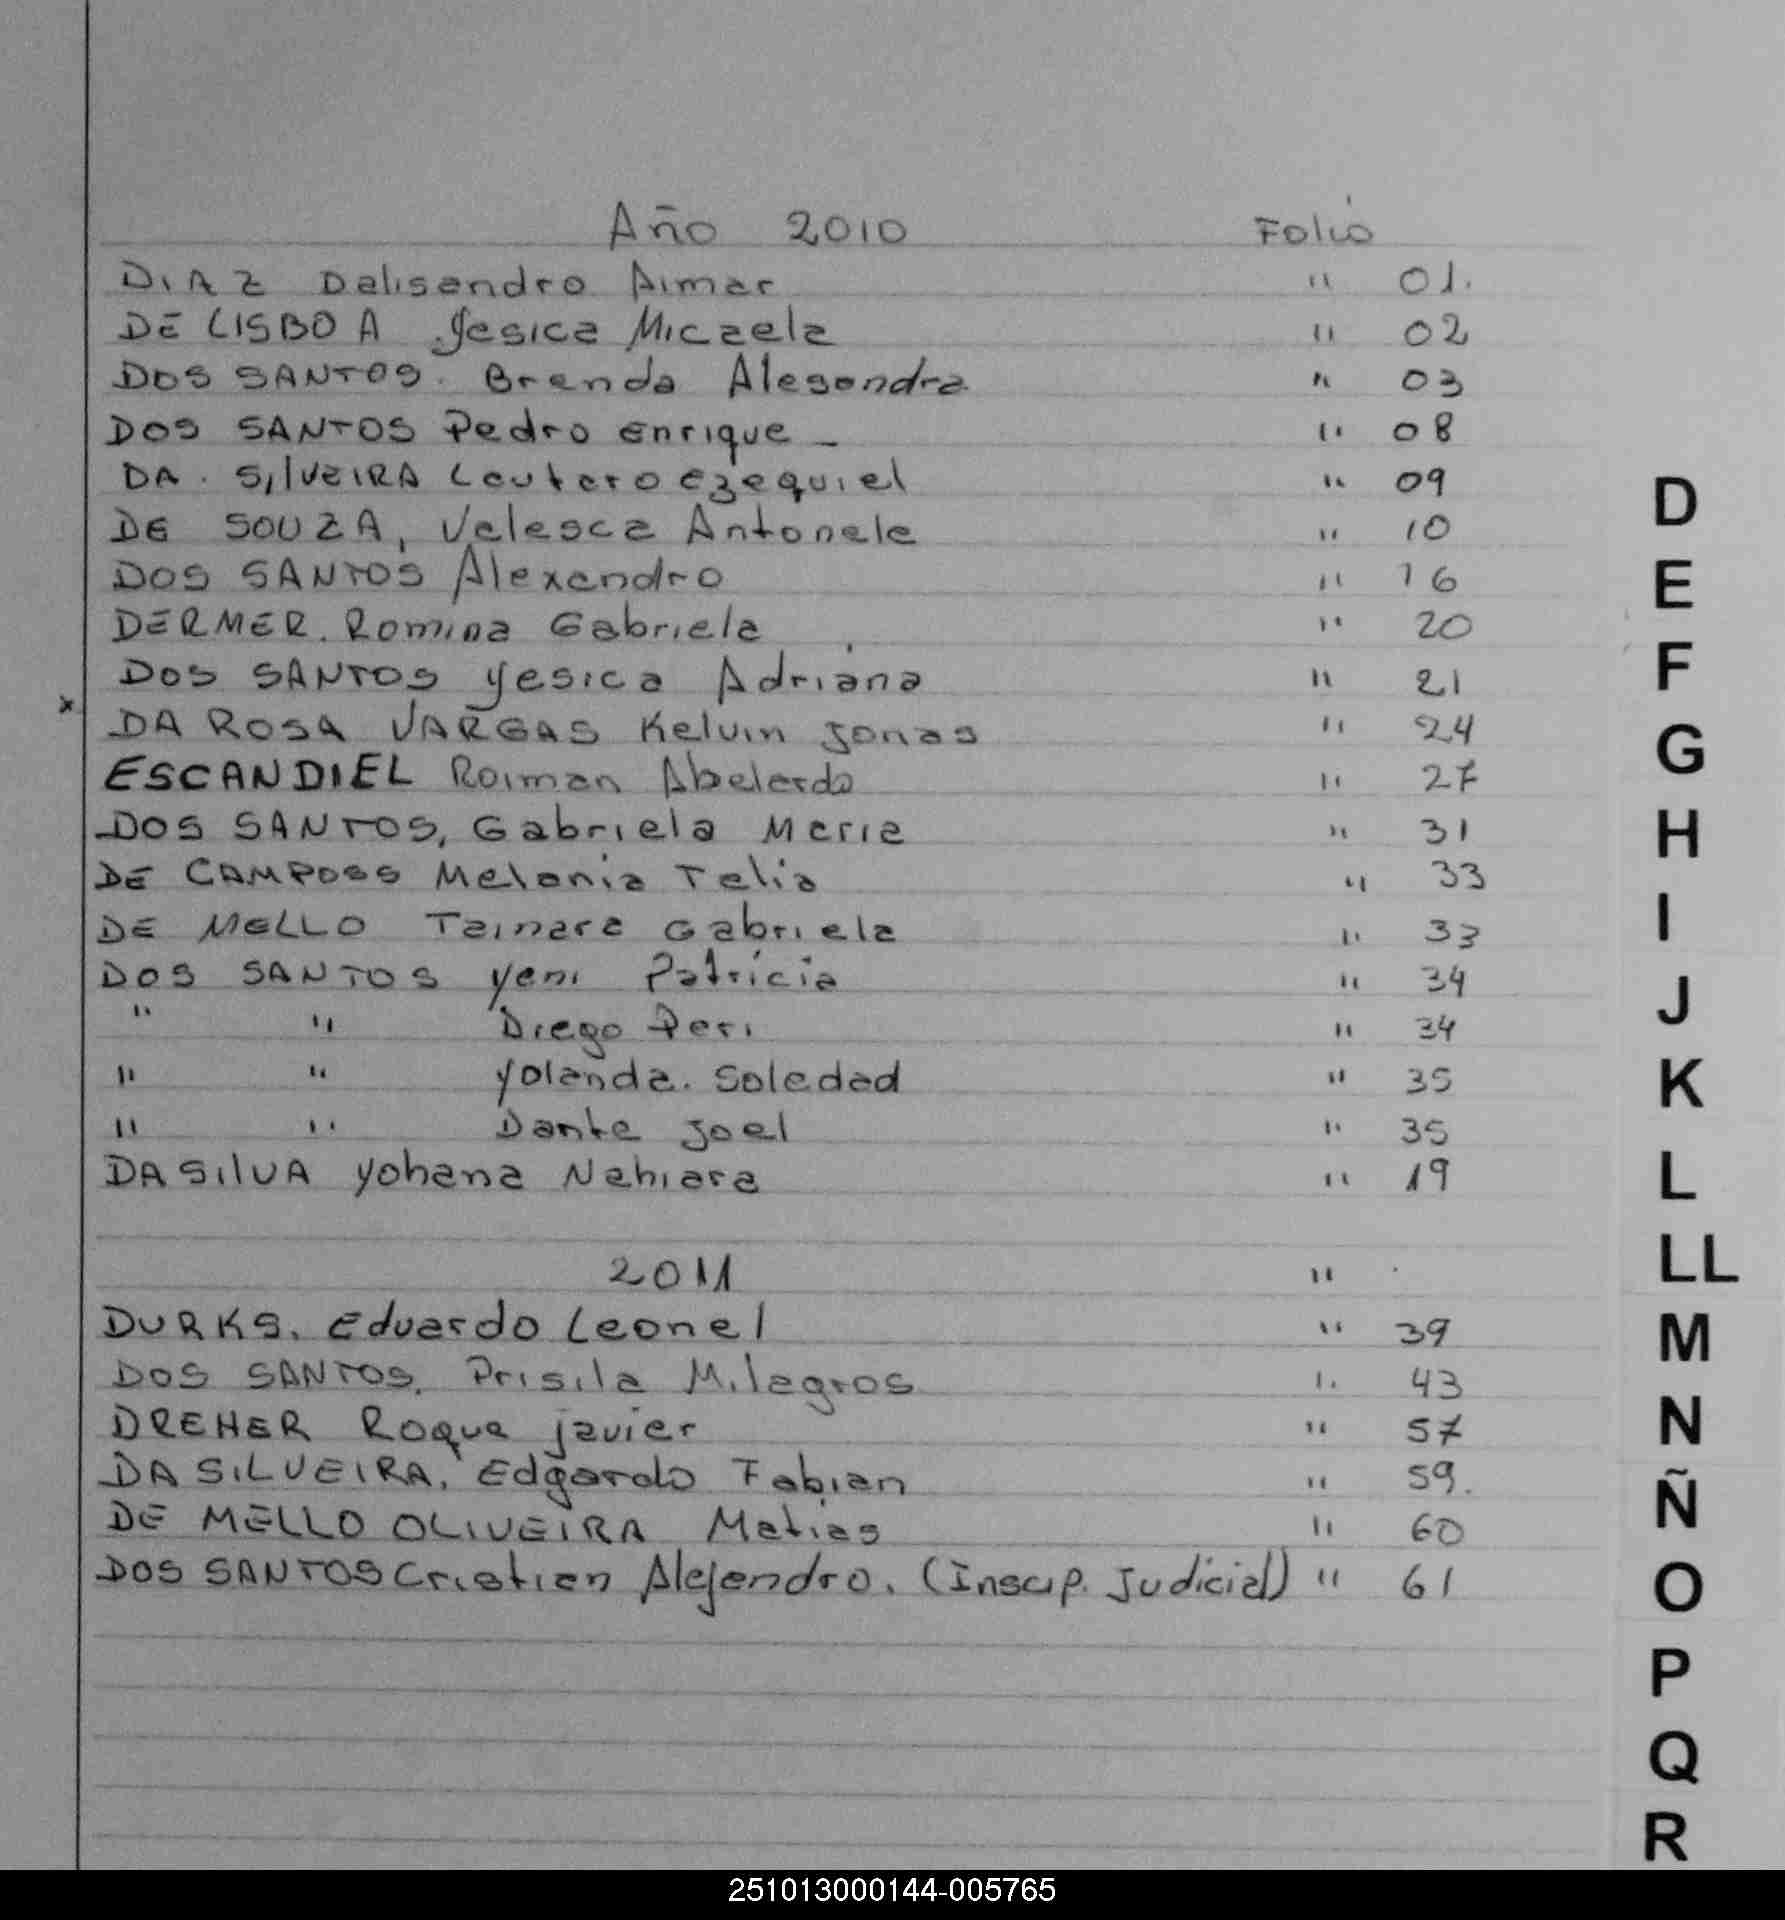 Año 2010 Folio
DIAZ Dalisandro Aimar " 01.
DE LISBOA Yesica Micaela " 02
DOS SANTOS. Brenda Alesandra " 03
DOS SANTOS Pedro Enrique - " 08
DA. SilVEIRA Lautaro Ezequiel " 09
DE SOUZA, Valesca Antonela " 10
DOS SANTOS Alexandro " 16
DERMER. Romina Gabriela " 20
DOS SANTOS Yesica Adriana " 21
x DA ROSA VARGAS Kelvin Jonas " 24
ESCANDIEL Roiman Abelardo " 27
DOS SANTOS, Gabriela Maria " 31
DE CAMPOSS Melania Telia " 33
DE MELLO Tainara Gabriela " 33
DOS SANTOS Yeni Patricia " 34
" " Diego Peri " 34
" " Yolanda. Soledad " 35
" " Dante Joel " 35
DA SilVA Yohana Nahiara " 19
2011 "
DURKS. Eduardo Leonel " 39
DOS SANTOS, Prisila Milagros " 43
DREHER Roque javier " 57
DA SILVEIRA, Edgardo Fabian " 59.
DE MELLO OLIVEIRA Matias " 60
DOS SANTOS Cristian Alejandro. (Inscip. Judicial) " 61
D
E
F
G
H
I
J
K
L
LL
M
N
Ñ
O
P
Q
R
251013000144-005765